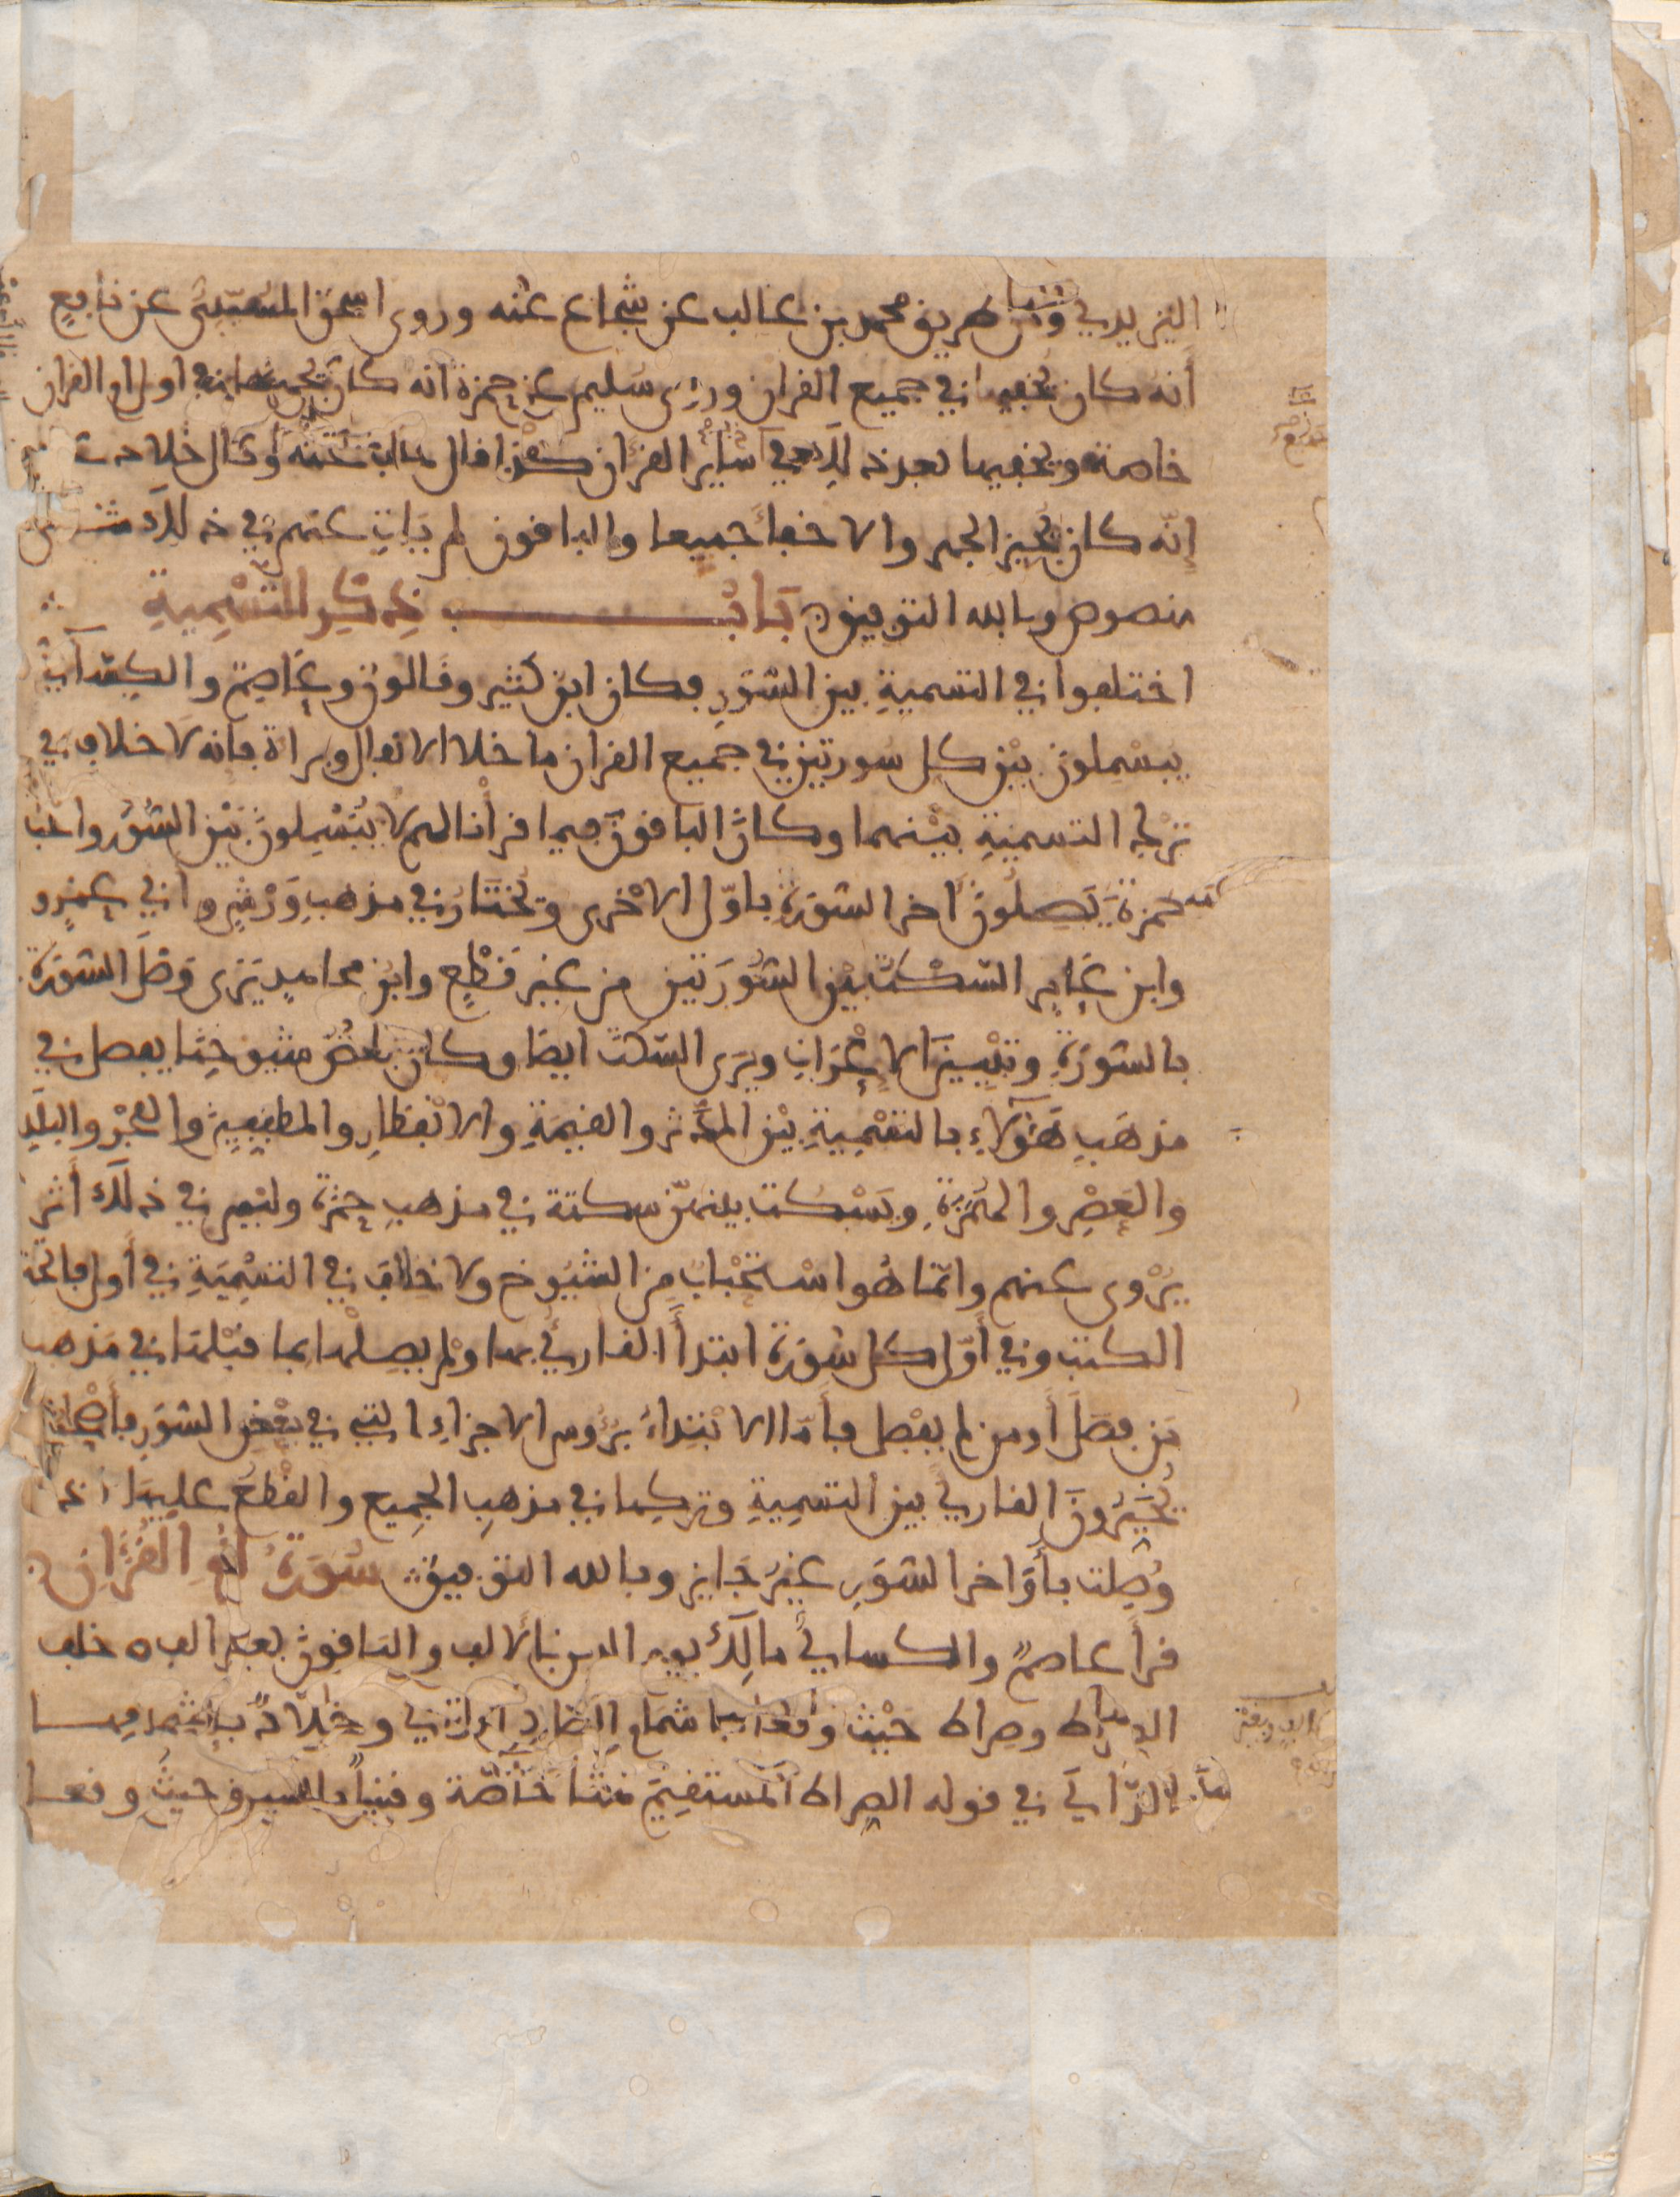 اليزيدي ومن طريق محمد بن غالب عن شجاع عنه وروى اسحق المسيّبى عن نافع
أنه كان يخفيها في جميع القران وروى سليم عن حمزة انه كان يجهر بها في اول ام القران
خاصة ويخفيها بعد ذلك في سائر القرآن كذا قال خلف عنه وقال خلاد عنه
إنّه كان يُجيز الجهر والاخفأ جميعا والباقون لم يَاتِ عنهم في ذلك شى
منصوص وبالله التوفيق بَابُ ذِكْرِ التسْمِيةِ
اختلفوا في التسميةِ بين السُّوَرِ فكان ابن كثير وقالون وعَاصِم والكِسَآئيُّ
يبسْمِلونَ بيْن كل سورتين في جميع القران ما خلا الانفال وبراة فانه لا خلاف في
تركِ التسميةِ بيْنهما وكانَ الباقون فيما قرأنا لهم لا يُبَسْمِلونَ بَيْن السُّوَر واصحاب
حمزةَ يَصِلُونَ اخر السّورَة باوّل الاخرى ويُختَارُ في مذهبِ وَرْشٍ وابي عَمْرٍو
وابن عَامِرٍ السَّكْتُ بيْن السُّورَتين من غير قَطْعٍ وابن مجاهدٍ يَرَى وَصْلَ السّورَة
بالسّورَةِ وتَبْيينَ الإعْرَابِ ويَرَى السّكتَ ايضا وكان بعْضُ شيوخِنا يفصل في
مذهَبِ هَؤلاءِ بالتسْمِيةِ بيْن المدّثر والقيمَةِ والانْفِطارِ والمطفِّفِين والفَجْرِ والبلَدِ
والعَصْرِ والهُمَزَةِ ويَسْكت بينهنّ سكتة في مذهبِ حمْزَة وليس في ذلك أثر
يُرْوى عنهم وانّما هُو اسْتحْبابٌ مِن الشيُوخ ولا خلافَ في التسْمِيَةِ في أول فاتحة
الكتب وفي أوّل كل سُورَة ابتدأَ القارئُ بها ولم يصِلْها بما قبْلها في مَذهب
مَن فصَلَ أو من لم يفْصل فأمّا الابتداءُ برُؤس الاجزاءِ التي في بعْضِ السّوَرِ فأصْحابنا
يُخَيّرُونَ القارئَ بين التسمِيةِ وتركِها في مذهبِ الجميع والقطْعُ عليها اذا
وُصِلت بأوَاخر السّوَرِ غيْرُ جَايزٍ وبالله التوفيق سُورَةُ أمِّ القُرْآنِ
قرأَ عاصمٌ والكساىيُّ مالِكِ يوم الدين بالالف والباقونَ بغير الف خلف
الصراط وصراط حيْثُ وقعَا باشمامِ الصَّادِ الزّاي وخلّادٌ باشمامها
الزّايَ في قوله الصراط المستقيمَ هُنا خاصّة وقنبلٌ بالسين حيثُ وقعا